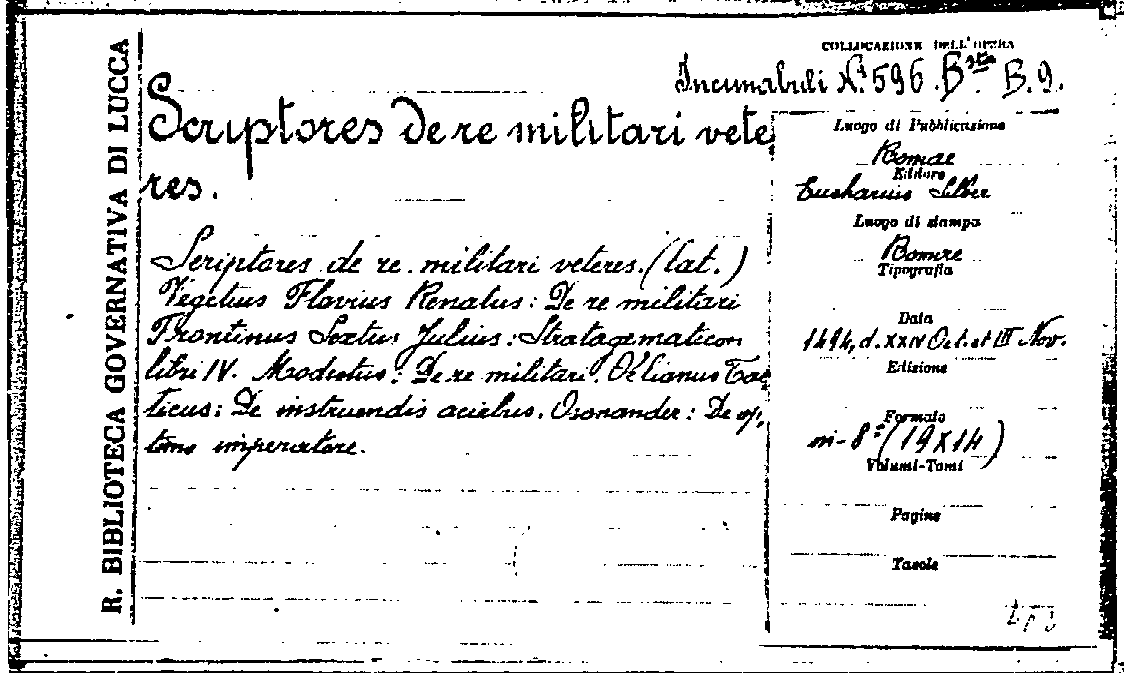 R. BIBLIOTECA GOVERNATIVA DI LUCCA
COLLOCAZIONE DELL'OPERA
Incunabuli N.i 596. B.sta B.9.
Scriptores de re militari vete
res.
Scriptores de re militari veteres. (lat.)
Vegetius Flavius Renatus: De re militari
Frontinus Sextus Julius: Stratagematicon
libri IV. Modestus: De re militari. Oelianus Tac
ticus: De instruendis aciebus. Osonander: De op,
timo imperatore.
Luogo di Pubblicazione
Romae
Editore
Eucharius Silber
Luogo di stampa
Romae
Tipografia
Data
1494, d. XXIV Oct. et III Nov.
Edizione
Formato
in-8° (19 X 14)
Volumi-Tomi
Pagine
Tavole